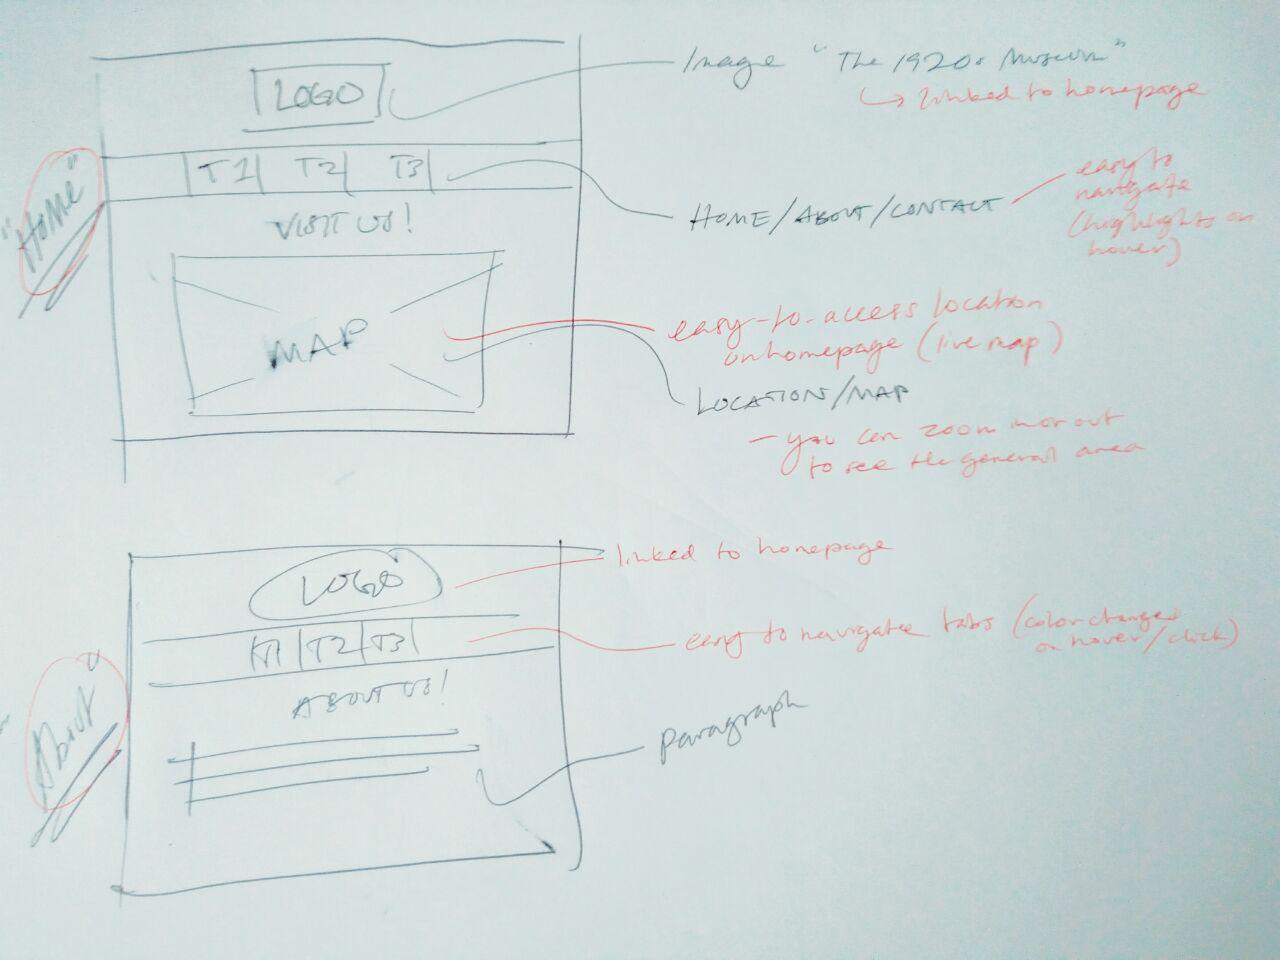 "Home"
LOGO
T1 T2 T3
VISIT US!
MAP
Image "The 1920s Museum"
linked to homepage
HOME/ABOUT/CONTACT
easy to
navigate
(highlights on
hover)
easy-to-access location
on homepage (live map)
LOCATION/MAP
- you can zoom in or out
to see the general area
"About"
LOGO
T1 T2 T3
ABOUT US!
linked to homepage
easy to navigate tabs (color changes
on hover/click)
paragraph